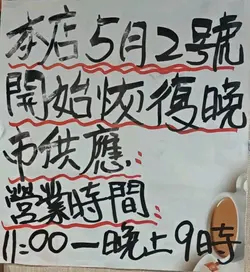 本店5月2號
開始恢復晚
市供應:
營業時間:
11:00一晚上9時